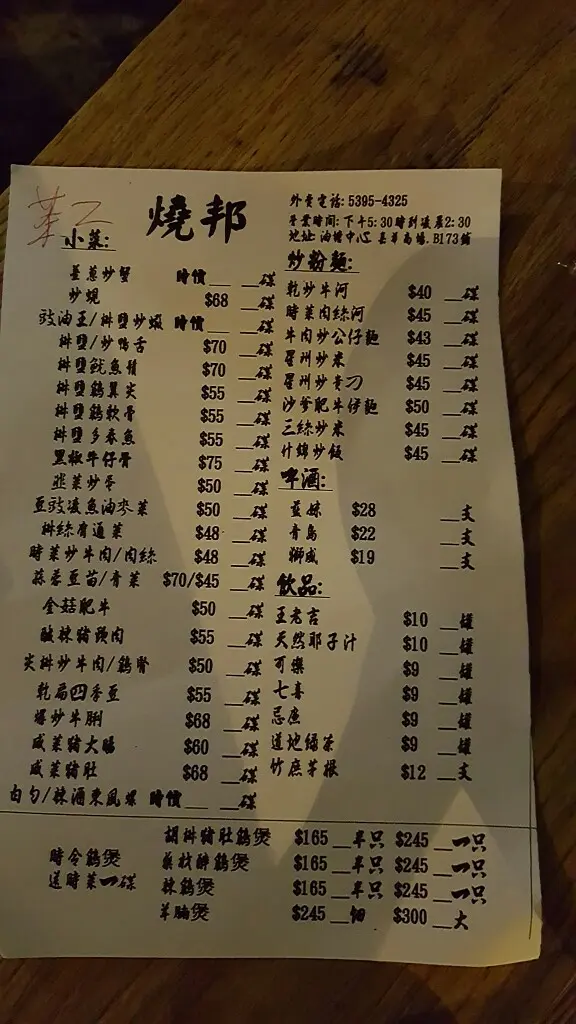 菜乙
燒邦
外賣電話: 5395-4325
營業時間: 下午5:30時到凌晨2:30
地址: 油塘中心, 嘉華商場, B173鋪
小菜:
薑蔥炒蟹 時價__ __碟
炒蜆 $68 __碟
豉油王/椒鹽炒蝦 時價__ __碟
椒鹽/炒鴨舌 $70 __碟
椒鹽魷魚鬚 $70 __碟
椒鹽鷄翼尖 $55 __碟
椒鹽鷄軟骨 $55 __碟
椒鹽多春魚 $55 __碟
黑椒牛仔骨 $75 __碟
韮菜炒 $50 __碟
豆豉凌魚油麥菜 $50 __碟
椒絲腐通菜 $48 __碟
時菜炒牛肉/肉絲 $48 __碟
蒜蓉豆苗/青菜 $70/$45 __碟
金菇肥牛 $50 __碟
酸辣豬頸肉 $55 __碟
尖椒炒牛肉/鷄腎 $50 __碟
乾扁四季豆 $55 __碟
爆炒牛脷 $68 __碟
咸菜豬大腸 $60 __碟
咸菜豬肚 $68 __碟
白勺/辣酒東風螺 時價__ __碟
炒粉麵:
乾炒牛河 $40 __碟
時菜肉絲河 $45 __碟
牛肉炒公仔麵 $43 __碟
星州炒米 $45 __碟
星州炒貴刁 $45 __碟
沙爹肥牛仔麵 $50 __碟
三絲炒米 $45 __碟
什錦炒飯 $45 __碟
啤酒:
藍妹 $28 __支
青島 $22 __支
獅威 $19 __支
飲品:
王老吉 $10 __罐
天然耶子汁 $10 __罐
可樂 $9 __罐
七喜 $9 __罐
忌廉 $9 __罐
道地綠茶 $9 __罐
竹庶茅根 $12 __支
胡椒豬肚鷄煲 $165 __半只 $245 __一只
時令鷄煲 醉鷄煲 $165 __半只 $245 __一只
送時菜一碟 辣鷄煲 $165 __半只 $245 __一只
羊腩煲 $245 __細 $300 __大